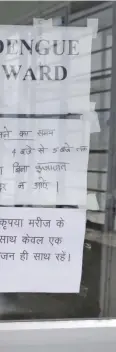 DENGUE
WARD
का समय
4 बजे से 5 बजे तक
बिना इजाजत
न आये।
कृपया मरीज के
साथ केवल एक
जन ही साथ रहें।